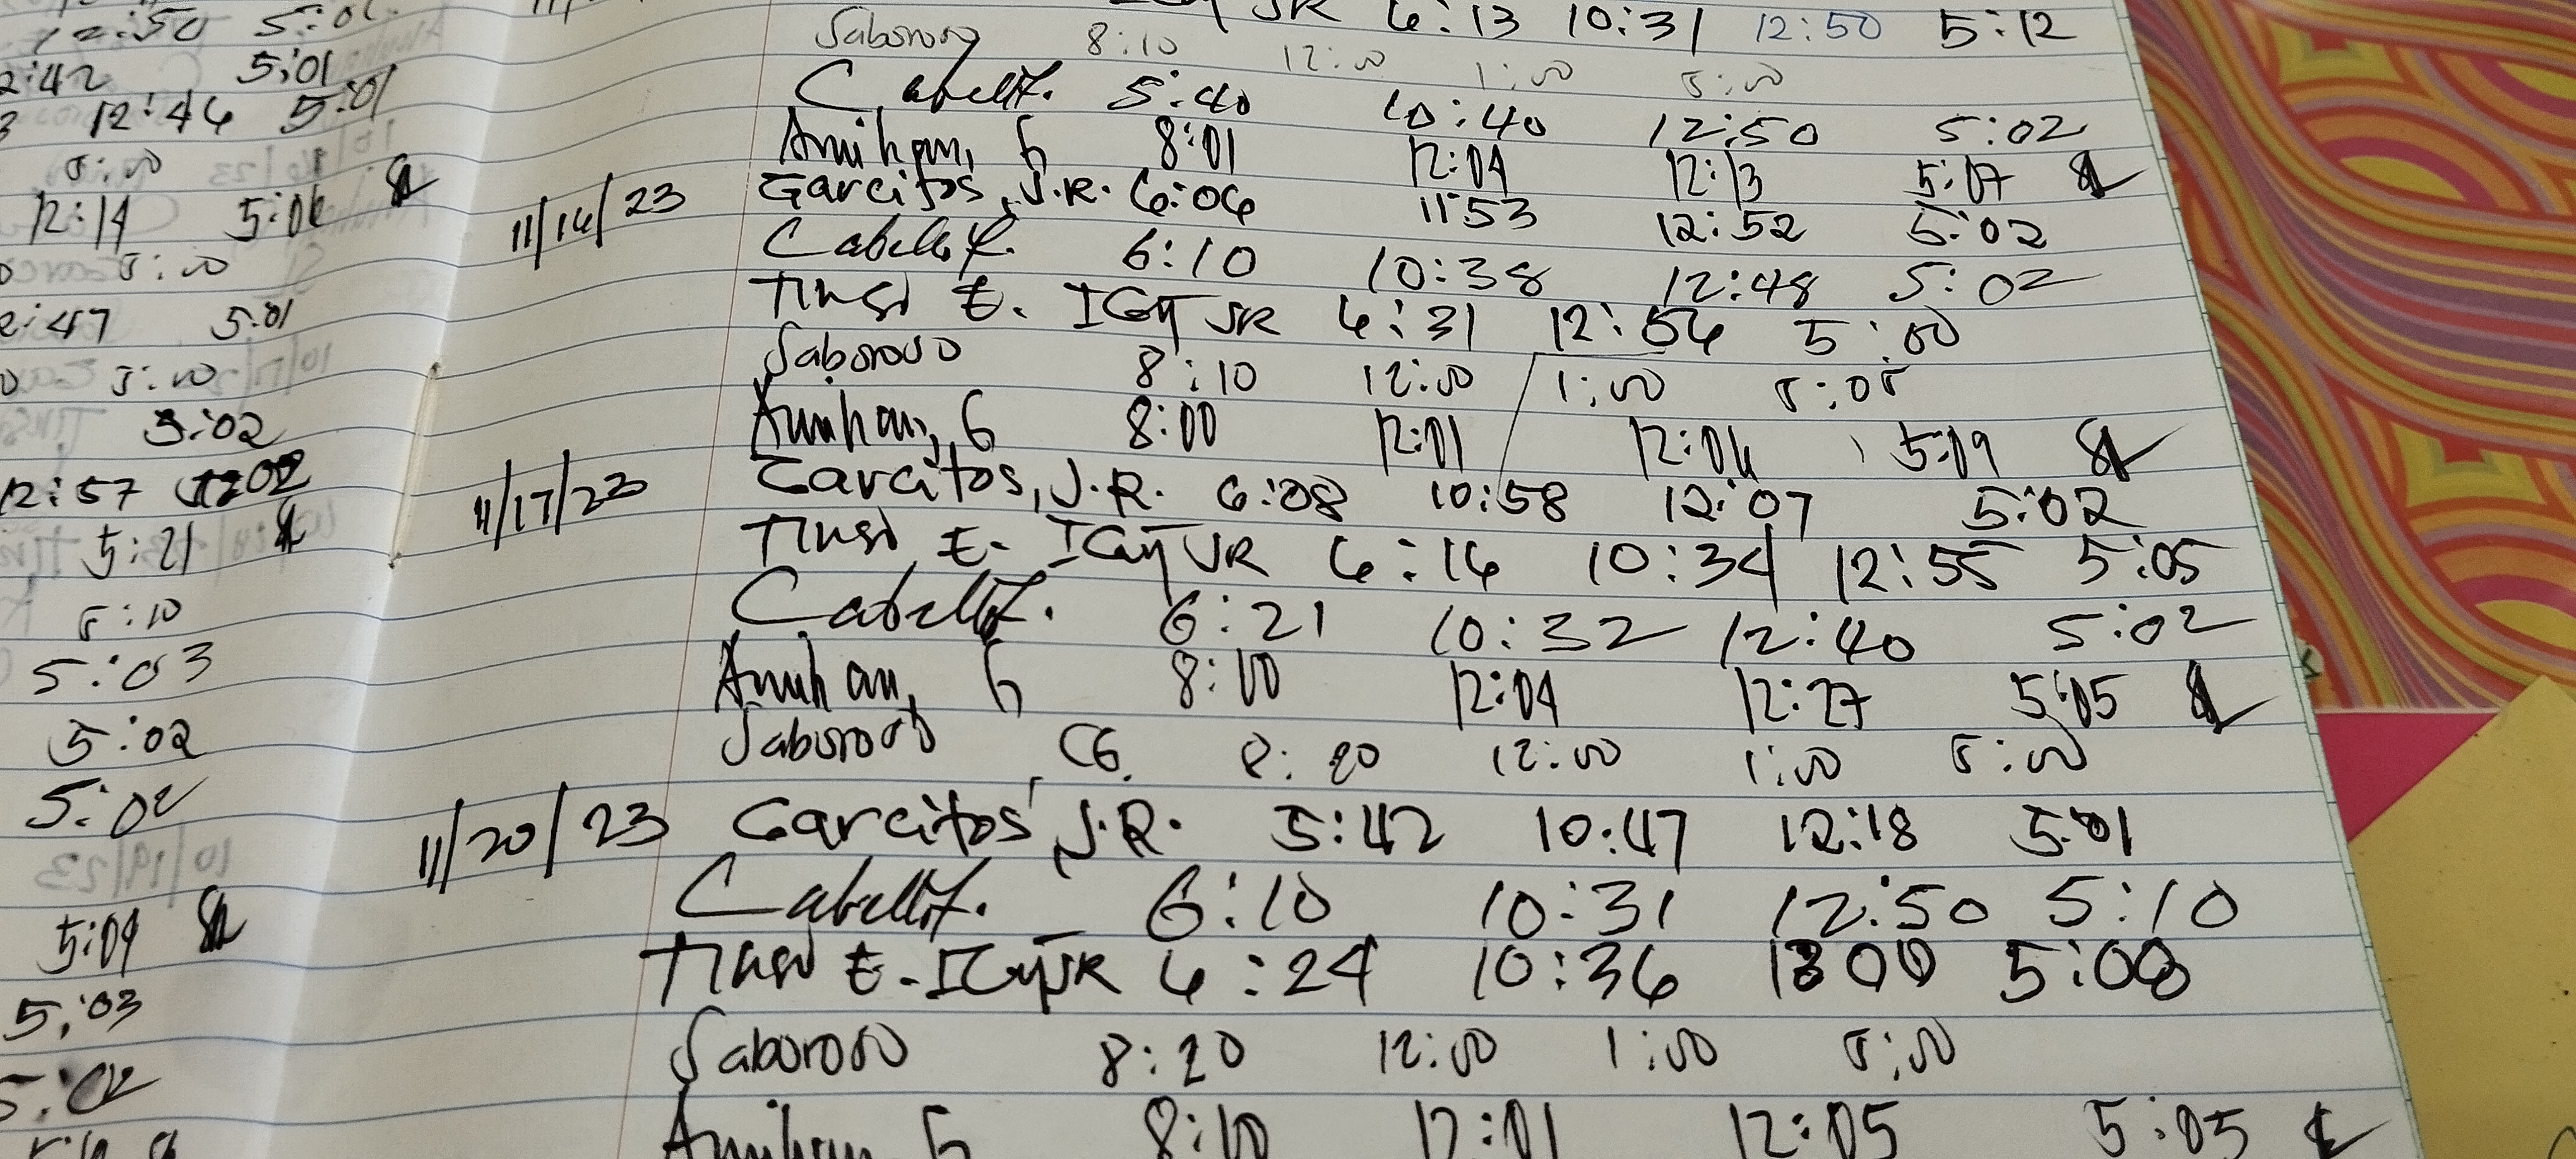 12:50 5:01
2:42 5:01
12:46 5:01
5:00
12:14 5:06
5:00
2:47 5:01
5:00
5:02
12:57 5:02
5:21
5:10
5:03
5:02
5:02
5:09
5:03
5:02
JR 6:13 10:31 12:50 5:12
Saboroso 8:10 12:00 1:00 5:00
Cabello, F. 5:40 10:40 12:50 5:02
Amihan, G 8:01 12:04 12:13 5:07
11/16/23 Garcitos, J.R. 6:06 11:53 12:52 5:02
Cabello, F. 6:10 10:38 12:48 5:02
E. IGY JR 6:31 12:56 5:00
Saboroso 8:10 12:00 1:00 5:05
Amihan, G 8:00 12:01 12:04 5:09
11/17/23 Garcitos, J.R. 6:08 10:58 12:07 5:02
E. IGY JR 6:16 10:34 12:55 5:05
Cabello, F. 6:21 10:32 12:40 5:02
Amihan, G 8:10 12:04 12:27 5:05
Saboroso, CG. 8:20 12:00 1:00 5:00
11/20/23 Garcitos, J.R. 5:42 10:47 12:18 5:01
Cabello, F. 6:10 10:31 12:50 5:10
E. IGY JR 6:24 10:36 5:08
Saboroso 8:20 12:00 1:00 5:00
Amihan G 8:10 12:01 12:05 5:05